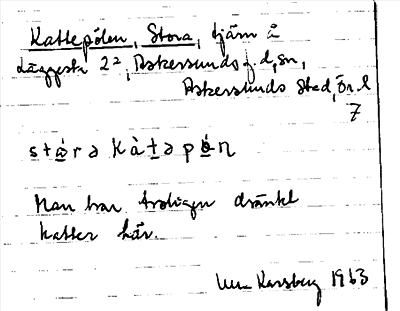 Kattepölen, Stora, tjärn å
Läggesta 2², Askersunds f.d. sn,
Askersunds stad, Ör. l
7
Man har troligen dränkt
katter här.
Karsberg 1963